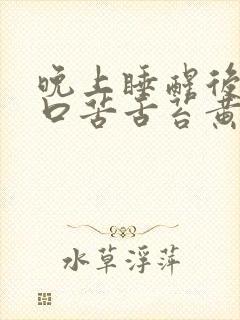 晚上睡醒後
口苦舌苔黃
水草浮萍